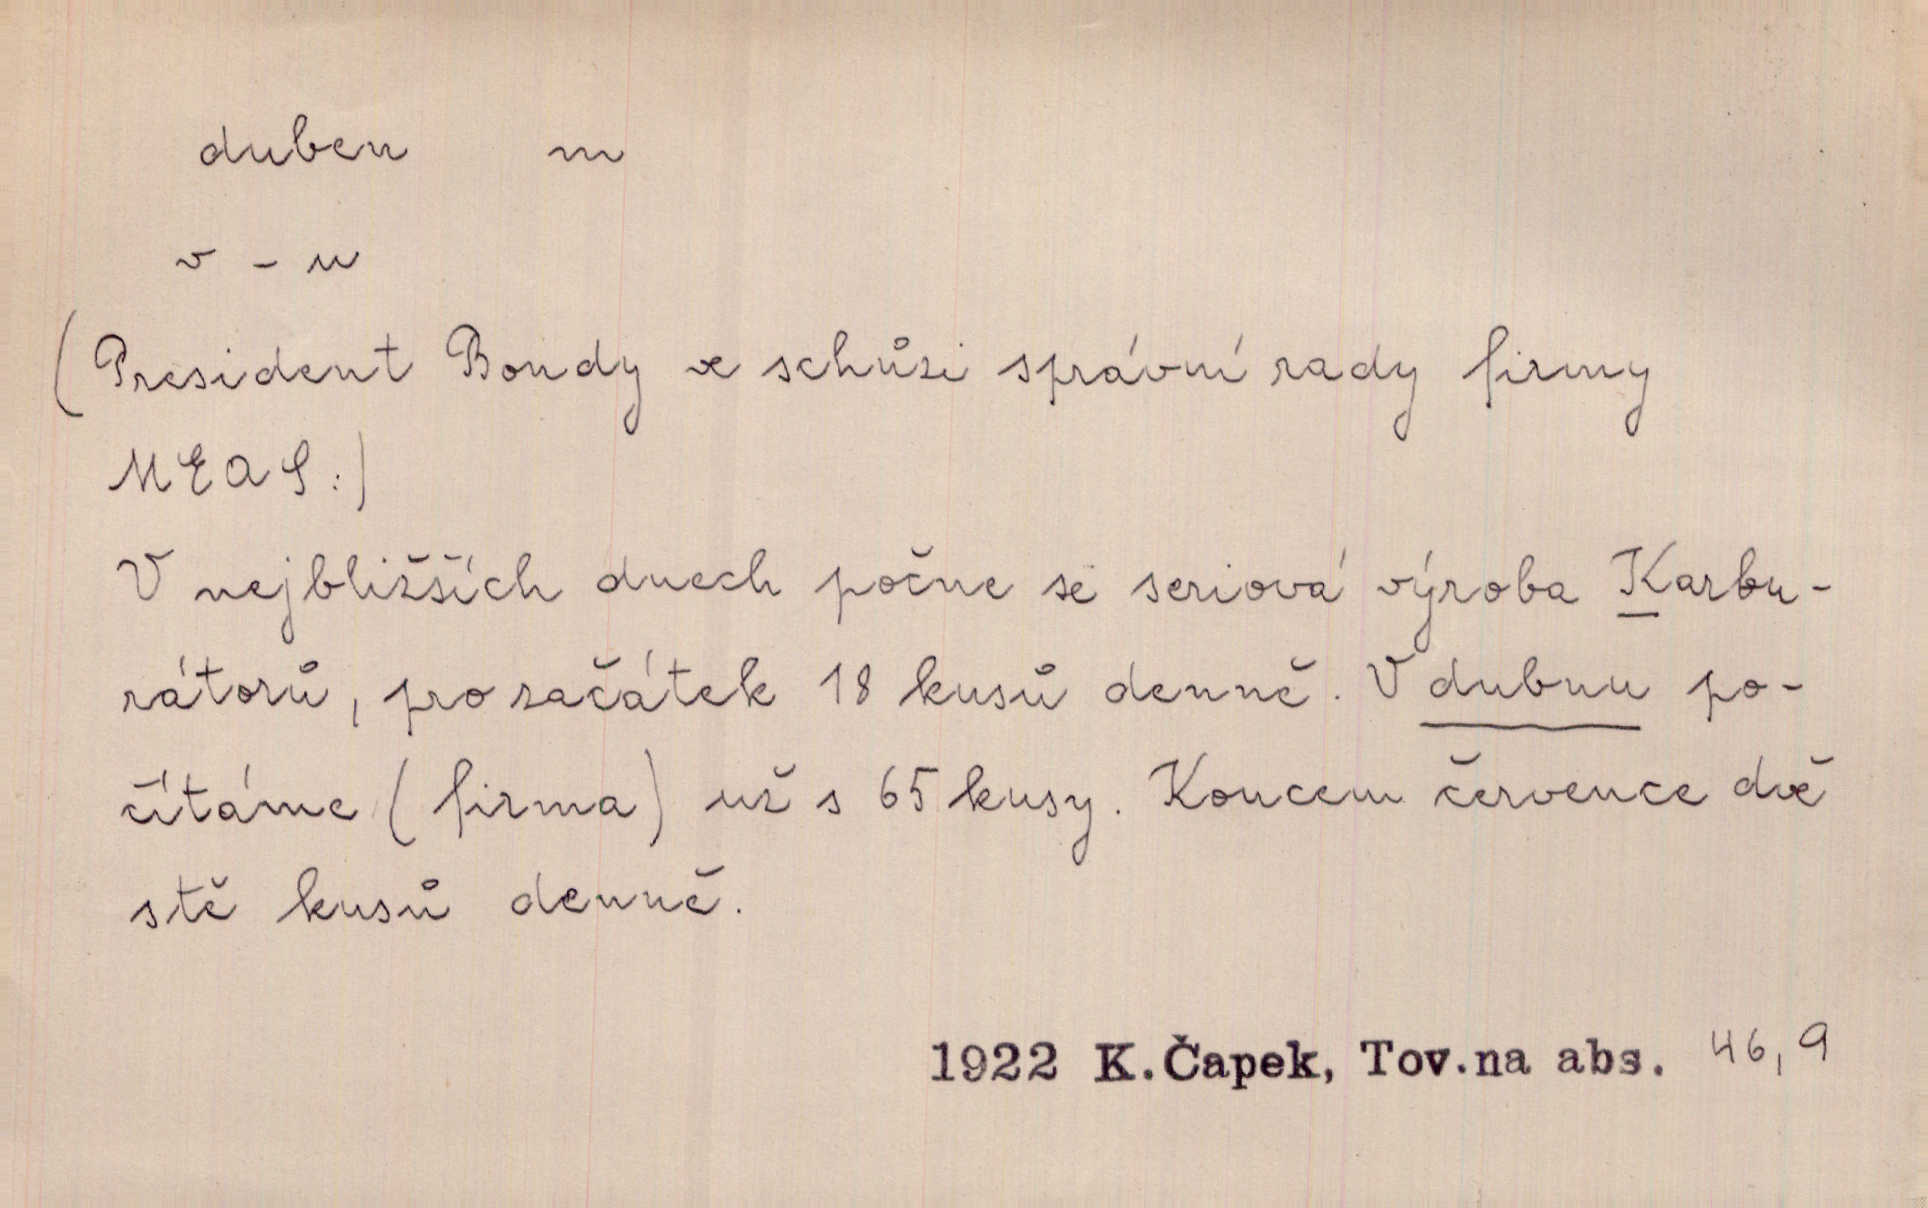 duben m
v - u
(President Bondy ve schůzi správní rady firmy
MEAS:)
V nejbližších dnech počne se seriová výroba Karbu-
rátorů, pro začátek 18 kusů denně. V dubnu po-
čítáme (firma) už s 65 kusy. Koncem července dvě
stě kusů denně.
1922 K.Čapek, Tov.na abs. 46,9